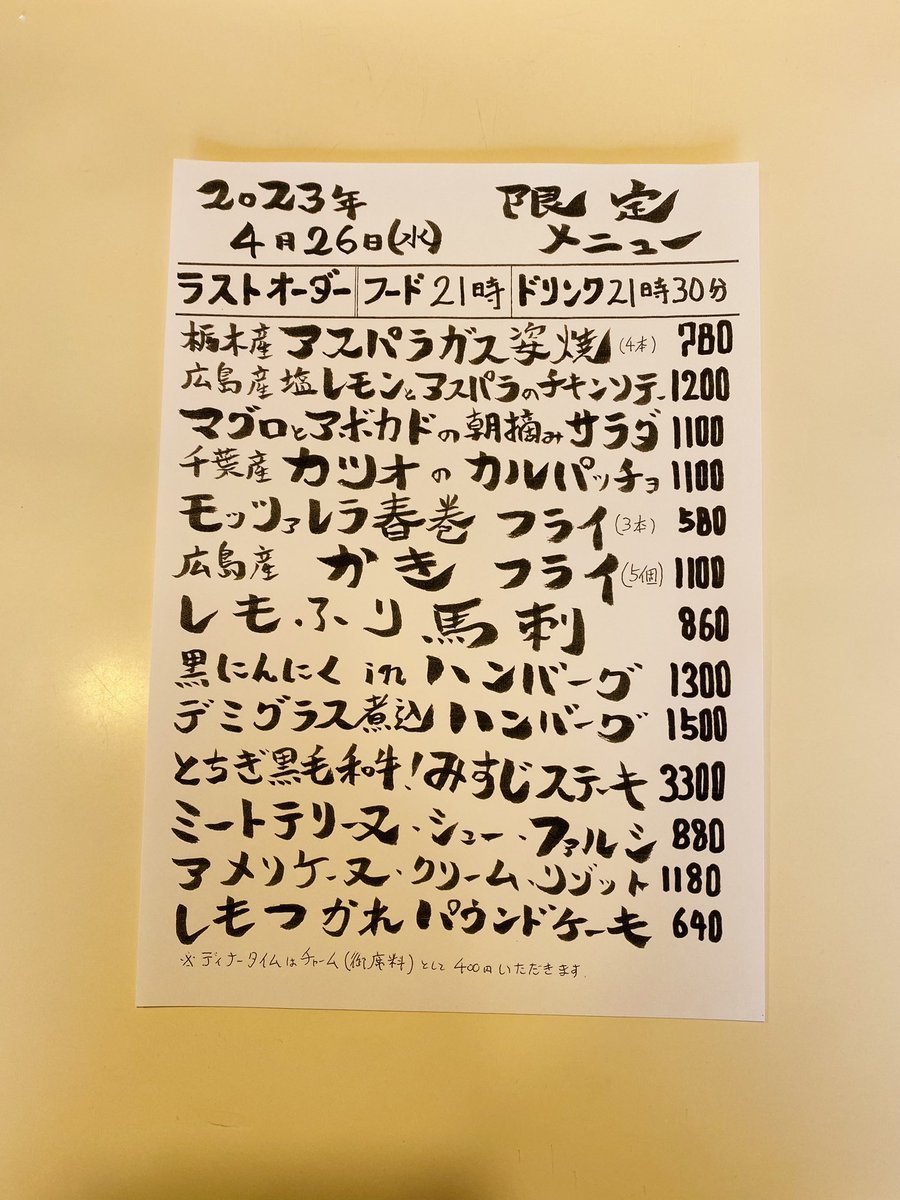 2023年 限定
4月26日(水) メニュー
ラストオーダー フード21時 ドリンク21時30分
栃木産 アスパラガス姿焼(4本) 780
広島産塩レモンとアスパラのチキンソテー 1200
マグロとアボカドの朝摘みサラダ 1100
千葉産 カツオのカルパッチョ 1100
モッツァレラ春巻フライ(3本) 580
広島産 かきフライ(5個) 1100
しもふり馬刺 860
黒にんにくinハンバーグ 1300
デミグラス煮込ハンバーグ 1500
とちぎ黒毛和牛!みすじステーキ 3300
ミートテリーヌ・シュー・ファルシ 880
アメリケーヌ・クリーム・リゾット 1180
しもつかれパウンドケーキ 640
※ディナータイムはチャーム(御席料)として400円いただきます.